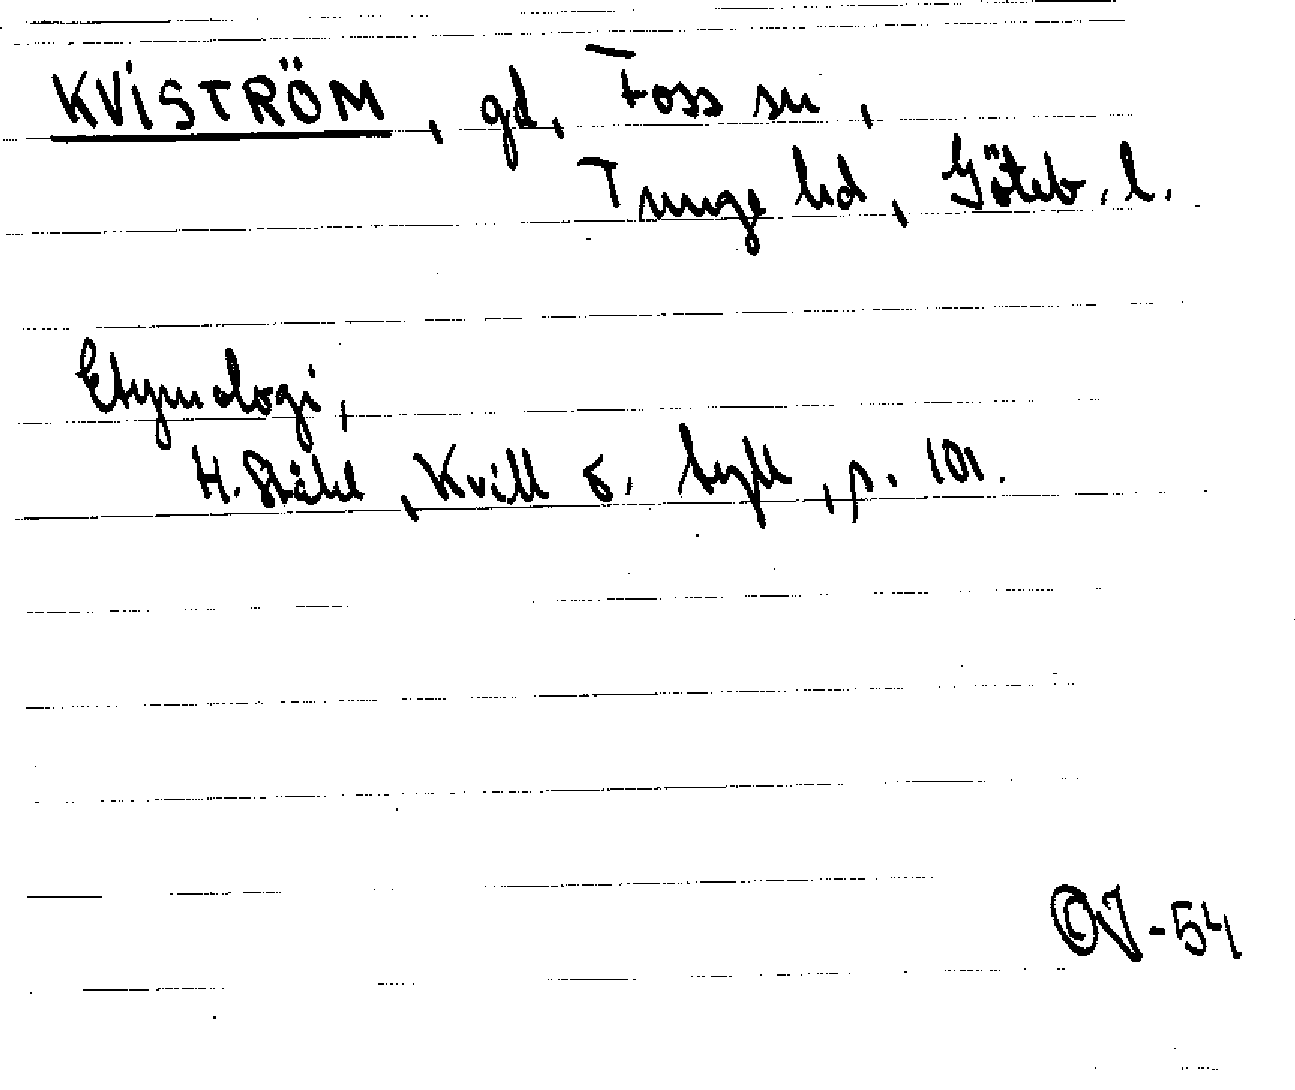 KVISTRÖM, gd, Foss sn,
Tunge hd, Göteb. l.
Etymologi,
H. Ståhl, Kvill o. tyll, p. 101.
-54